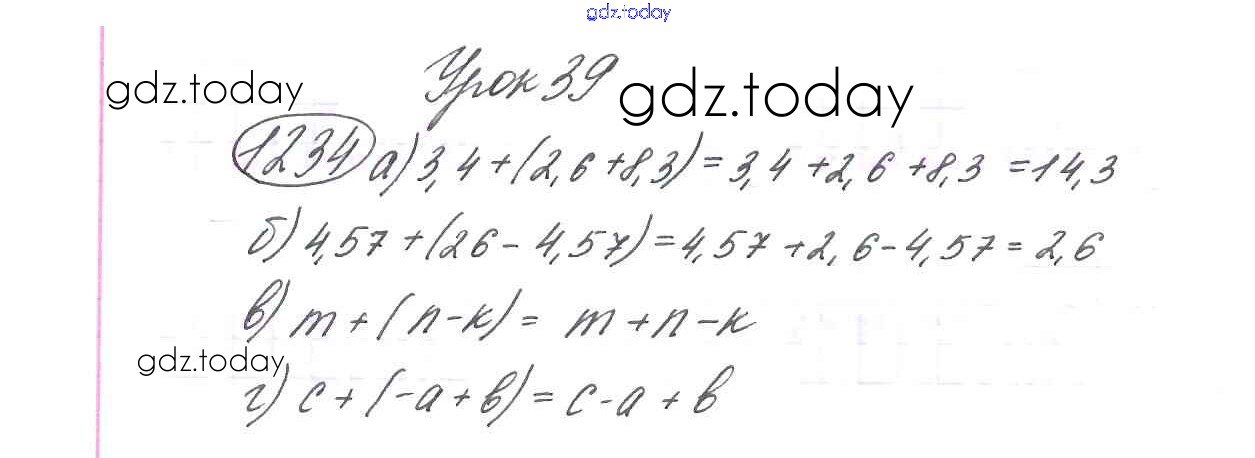 gdz.today
Урок 39
gdz.today gdz.today
1234 а) 3,4 + (2,6 + 8,3) = 3,4 + 2,6 + 8,3 = 14,3
б) 4,57 + (26 - 4,57) = 4,57 + 2,6 - 4,57 = 2,6
в) m + (n - к) = m + n - к
gdz.today
г) с + (-а + в) = с - а + в